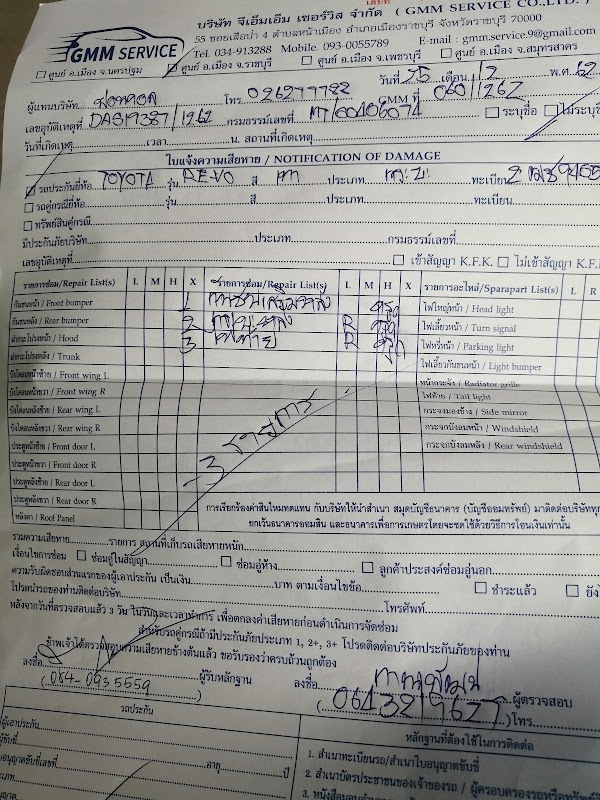 บริษัท จีเอ็มเอ็ม เซอร์วิส จำกัด ( GMM SERVICE CO.,LTD. )
55 ซอยเสือป่า 4 ตำบลหน้าเมือง อำเภอเมืองราชบุรี จังหวัดราชบุรี 70000
GMM SERVICE
Tel. 034-913288 Mobile. 093-0055789 E-mail : gmm.service.9@gmail.com
ศูนย์ อ.เมือง จ.นครปฐม ศูนย์ อ.เมือง จ.ราชบุรี ศูนย์ อ.เมือง จ.เพชรบุรี ศูนย์ อ.เมือง จ.สมุทรสาคร
วันที่ 25 เดือน 12 พ.ศ. 62
ผู้แทนบริษัท โทร. GMM ที่ 060/1262
เลขอุบัติเหตุที่ กรมธรรม์เลขที่ ระบุชื่อ ไม่ระบุชื่อ
วันที่เกิดเหตุ เวลา น. สถานที่เกิดเหตุ
ใบแจ้งความเสียหาย / NOTIFICATION OF DAMAGE
รถประกันยี่ห้อ TOYOTA รุ่น REVO สี เทา ประเภท ทะเบียน
รถคู่กรณียี่ห้อ รุ่น สี ประเภท ทะเบียน
ทรัพย์สินคู่กรณี
มีประกันภัยบริษัท ประเภท กรมธรรม์เลขที่
เลขอุบัติเหตุที่ เข้าสัญญา K.F.K. ไม่เข้าสัญญา K.F.K.
รายการซ่อม/Repair List(s) L M H X รายการซ่อม/Repair List(s) L M H รายการอะไหล่/Sparapart List(s) L R
กันชนหน้า / Front bumper 1 ไฟใหญ่หน้า / Head light
กันชนหลัง / Rear bumper 2 R ไฟเลี้ยวหน้า / Turn signal
ฝากระโปรงหน้า / Hood 3 ไฟท้าย R ไฟหรี่หน้า / Parking light
ฝากระโปรงหลัง / Trunk ไฟเลี้ยวกันชนหน้า / Light bumper
บังโคลนหน้าซ้าย / Front wing L หน้ากระจัง / Radiator grille
บังโคลนหน้าขวา / Front wing R ไฟท้าย / Tail light
บังโคลนหลังซ้าย / Rear wing L กระจกมองข้าง / Side mirror
บังโคลนหลังขวา / Rear wing R กระจกบังลมหน้า / Windshield
ประตูหน้าซ้าย / Front door L กระจกบังลมหลัง / Rear windshield
ประตูหน้าขวา / Front door R
3 รายการ
ประตูหลังซ้าย / Rear door L
ประตูหลังขวา / Rear door R การเรียกร้องค่าสินไหมทดแทน กับบริษัทให้นำสำเนา สมุดบัญชีธนาคาร (บัญชีออมทรัพย์) มาติดต่อบริษัททุก
หลังคา / Roof Panel ยกเว้นธนาคารออมสิน และธนาคารเพื่อการเกษตรโดยจะชดใช้ด้วยวิธีการโอนเงินเท่านั้น
รวมความเสียหาย รายการ สถานที่เก็บรถเสียหายหนัก
เงื่อนไขการซ่อม ซ่อมอู่ในสัญญา ซ่อมอู่ห้าง ลูกค้าประสงค์ซ่อมอู่นอก
ความรับผิดชอบส่วนแรกของผู้เอาประกัน เป็นเงิน บาท ตามเงื่อนไขข้อ ชำระแล้ว
โปรดนำรถของท่านติดต่อบริษัท โทรศัพท์
หลังจากวันที่ตรวจสอบแล้ว 3 วัน ในวันและเวลาทำการ เพื่อตกลงค่าเสียหายก่อนดำเนินการจัดซ่อม
สำหรับรถคู่กรณีถ้ามีประกันภัยประเภท 1, 2+, 3+ โปรดติดต่อบริษัทประกันภัยของท่าน
ข้าพเจ้าได้ตรวจสอบความเสียหายข้างต้นแล้ว ขอรับรองว่าครบถ้วนถูกต้อง
ลงชื่อ ผู้รับหลักฐาน ลงชื่อ ผู้ตรวจสอบ
(084-0935559) โทร.
รถประกัน หลักฐานที่ต้องใช้ในการติดต่อ
ผู้เอาประกัน 1. สำเนาทะเบียนรถ/สำเนาใบอนุญาตขับขี่
อายุ ปี 2. สำเนาบัตรประชาชนของเจ้าของรถ / ผู้ครอบครองรถหรือทรัพย์สิน